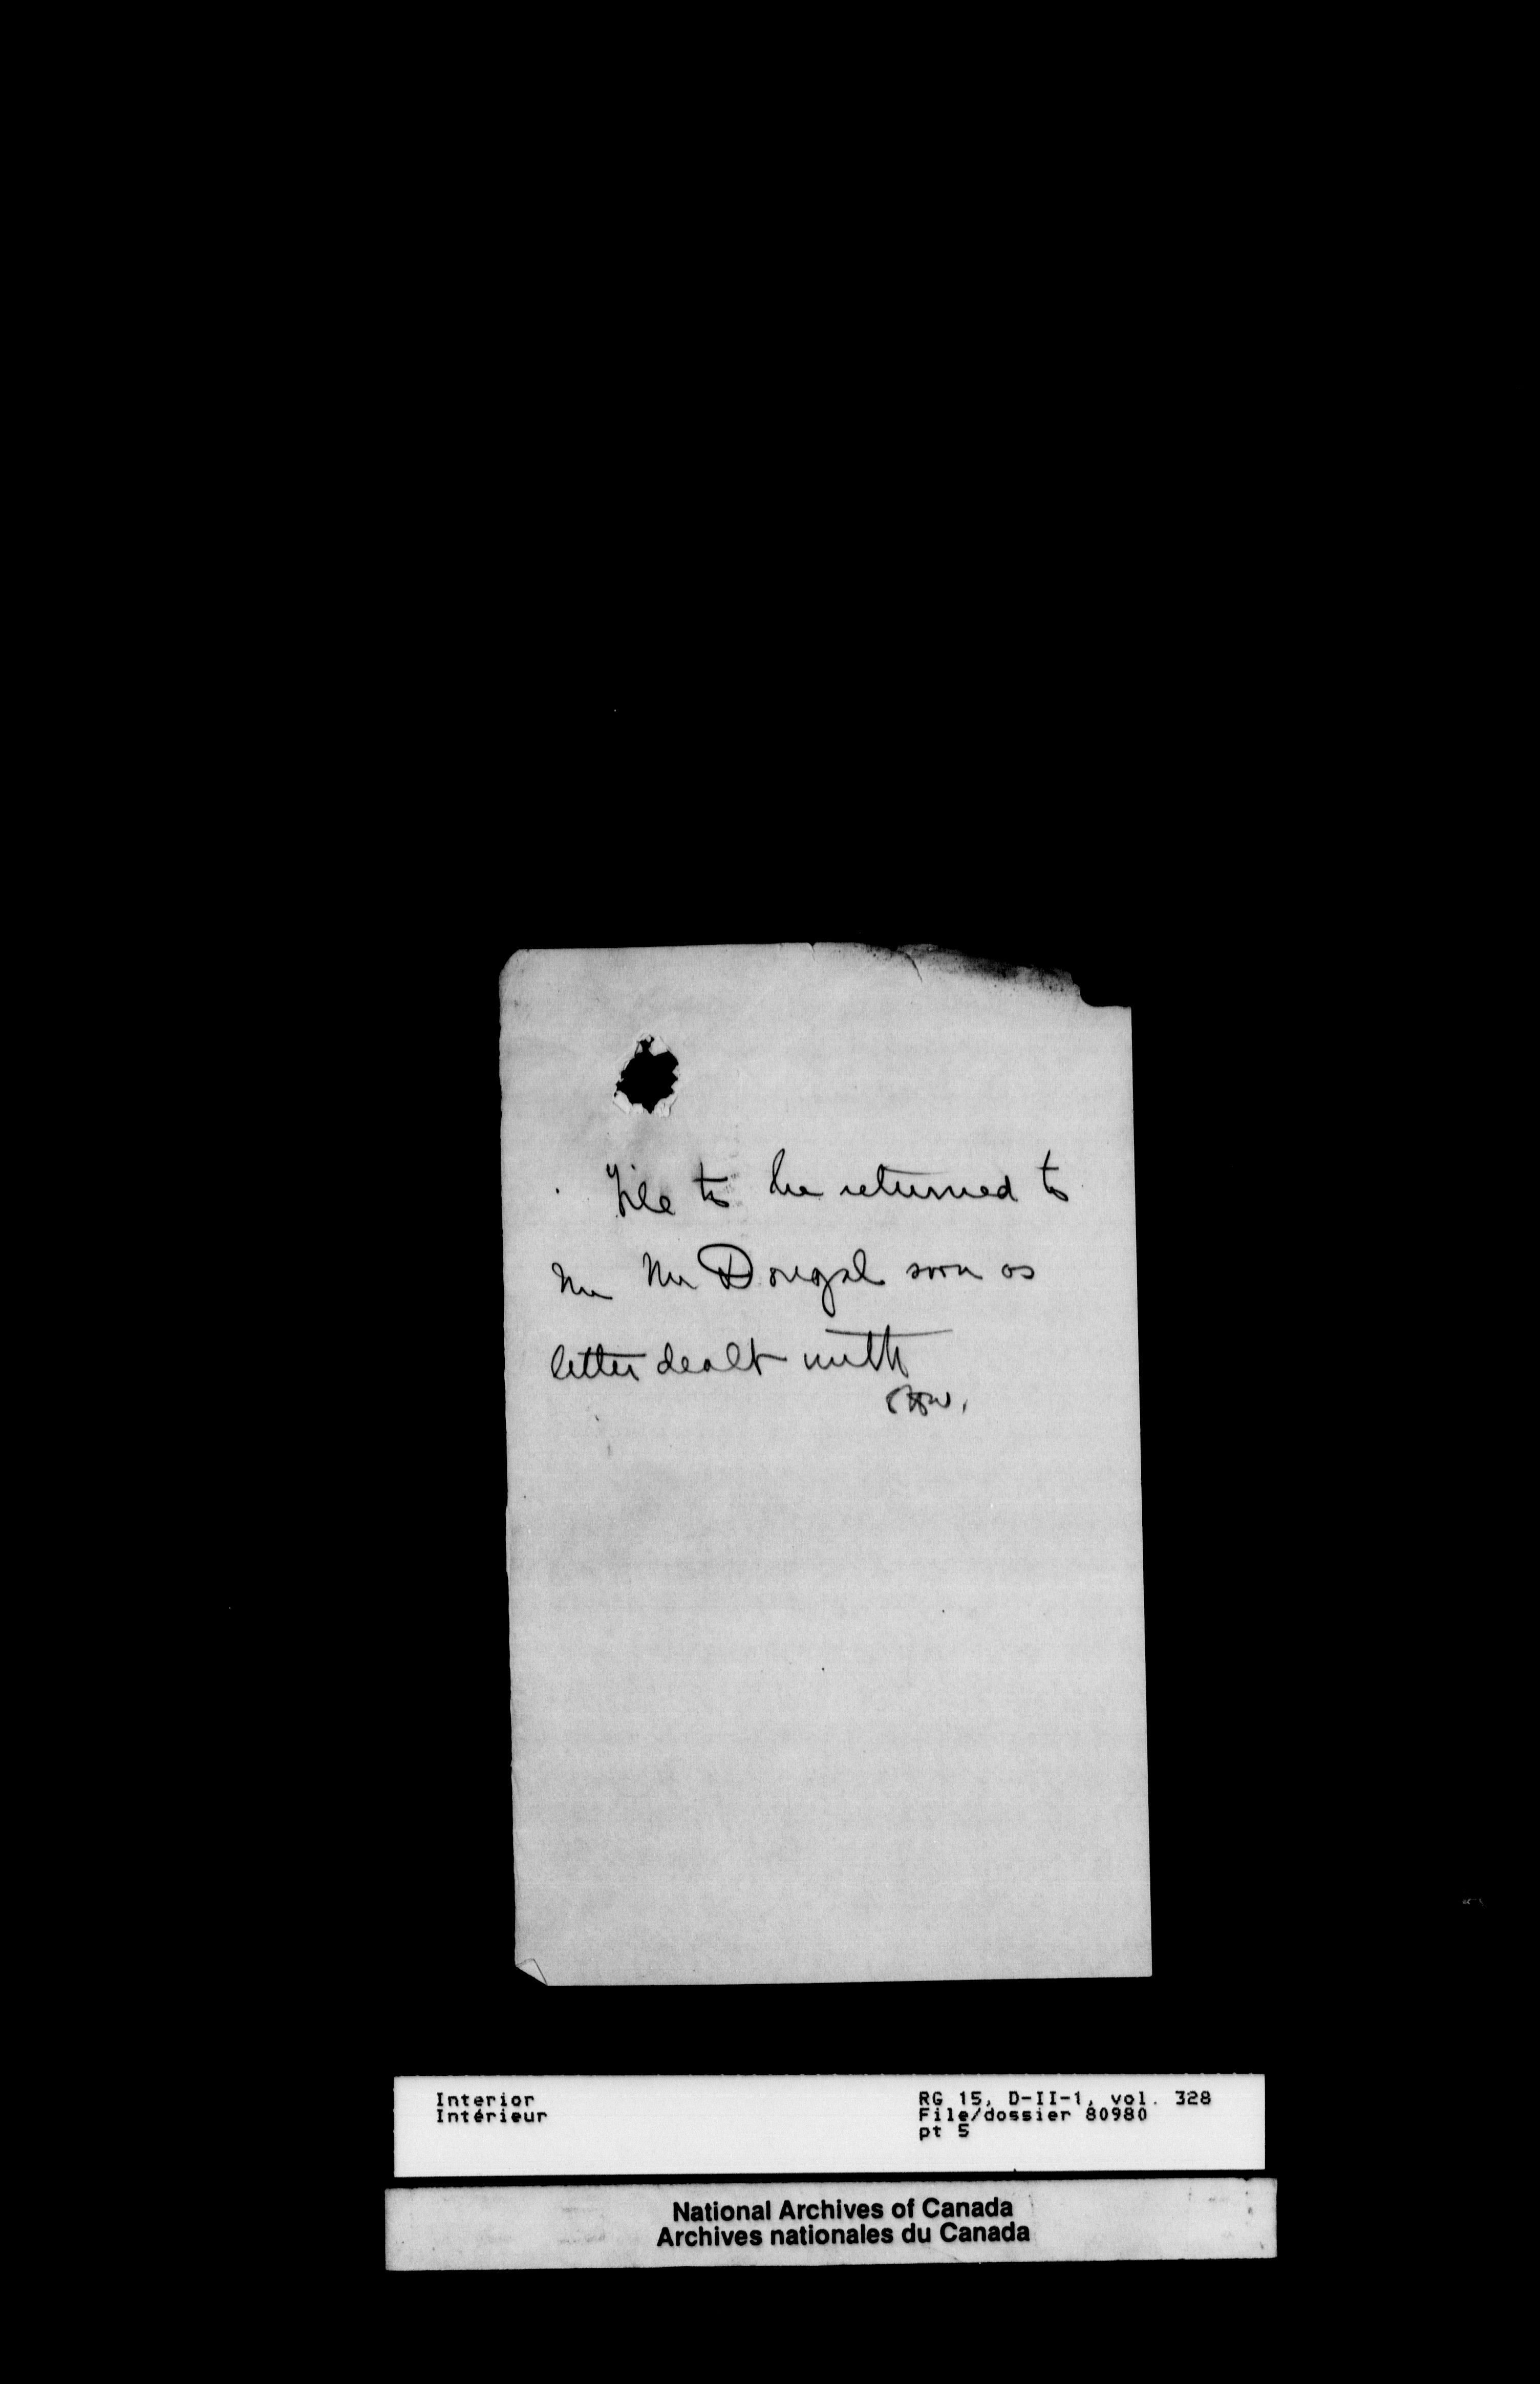 File to be returned to
Mr McDougal soon as
letter dealt with
Interior
Intérieur
RG 15, D-II-1, vol. 328
File/dossier 80980
pt 5
National Archives of Canada
Archives nationales du Canada